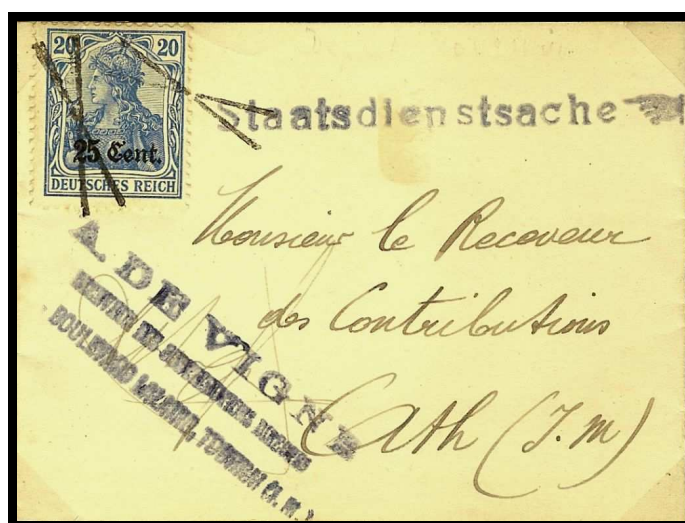 20 20
25 Cent.
DEUTSCHES REICH
Staatsdienstsache
Monsieur le Receveur
des Contributions
Ath (J.M)
A. DE VIGNE
BOULEVARD TOURNAI